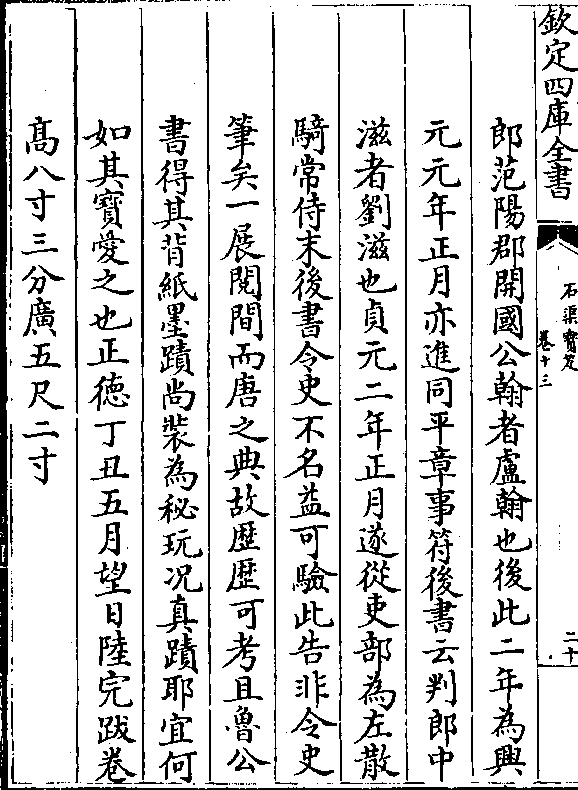 欽定四庫全書
石渠寶笈
卷十三
二十
郎范陽郡開國公翰者盧翰也後此二年為興
元元年正月亦進同平章事符後書云判郎中
滋者劉滋也貞元二年正月遂從吏部為左散
騎常侍末後書令史不名益可驗此告非令史
筆矣一展閱間而唐之典故歴歴可考且魯公
書得其背紙墨蹟尚裝為秘玩况真蹟耶宜何
如其寳愛之也正德丁丑五月望日陸完跋卷
髙八寸三分廣五尺二寸